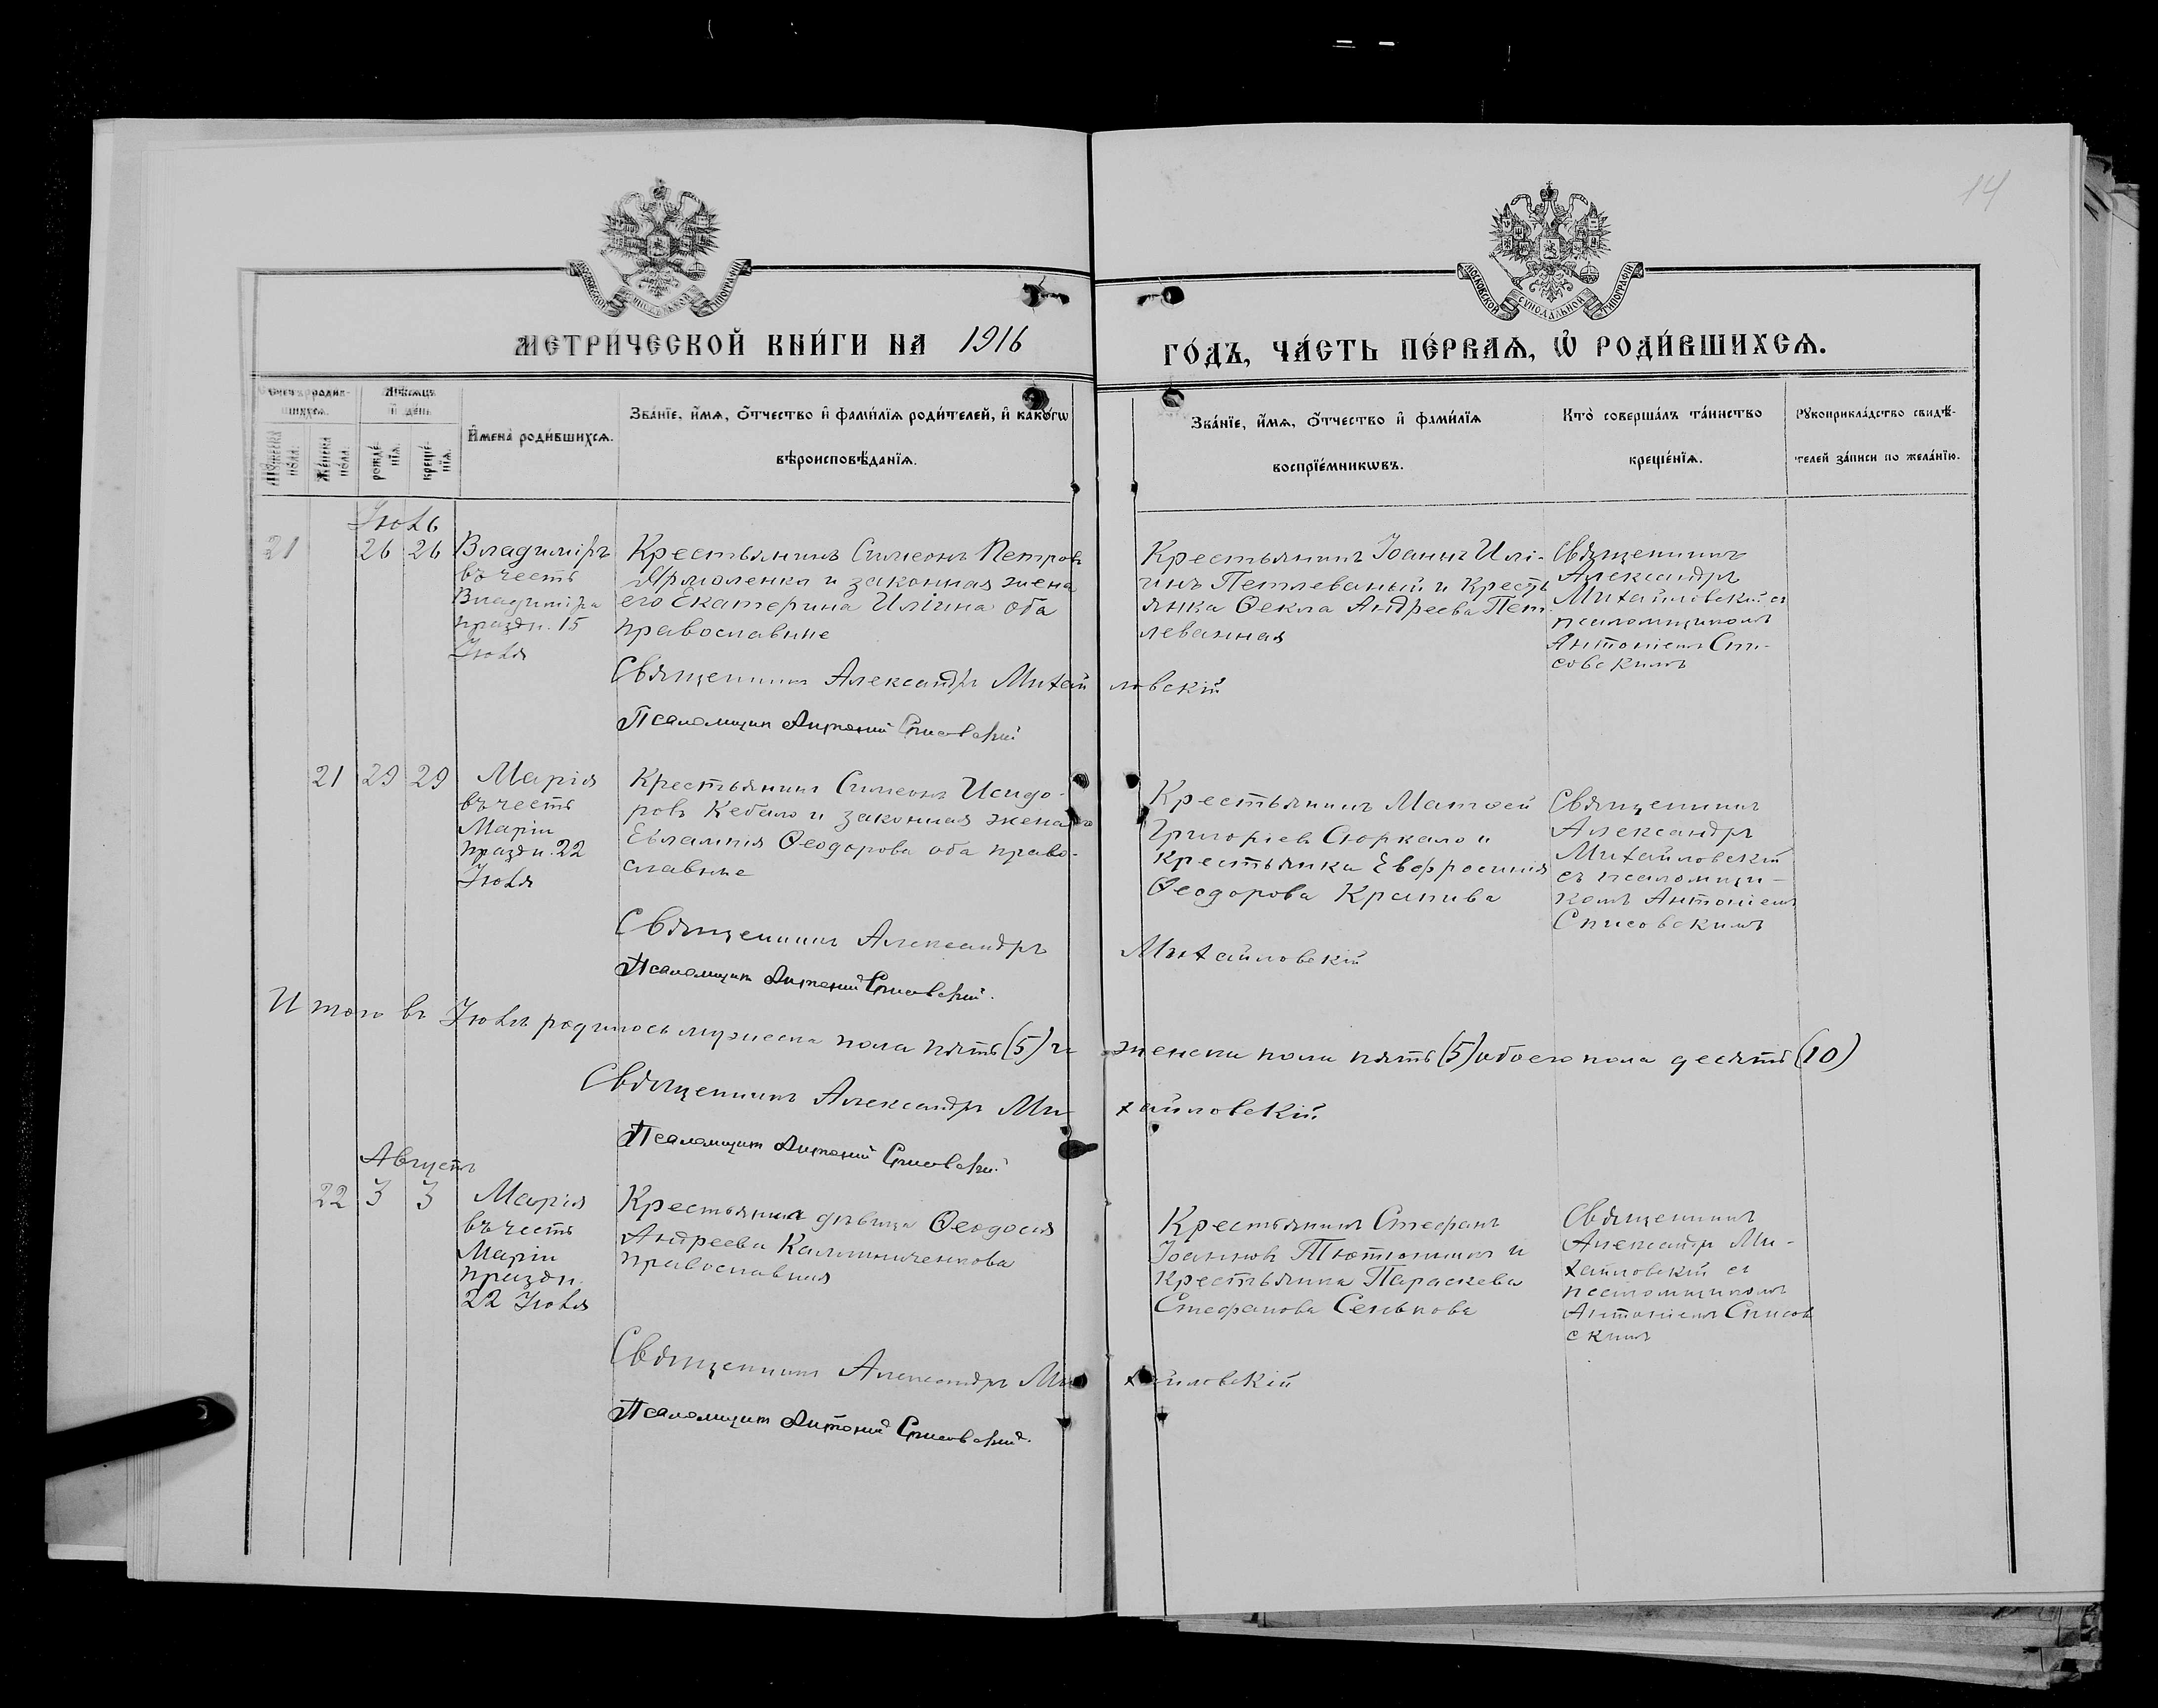 14
МОСКОВСКОЙ СѴНОДАЛЬНОЙ ТИПОГРАФІИ
МОСКОВСКОЙ СѴНОДАЛЬНОЙ ТИПОГРАФІИ
МЕТРИ́ЧЕСКОЙ КНИ́ГИ НА 1916
ГО́ДЪ, ЧА́СТЬ ПЕ́РВАѦ, Ѡ҆ РОДИ́ВШИХСѦ.
Счетъ родив-
шихсѧ.
Мꙋжеска по́ла.
Же́нска по́ла.
Мѣ́сѧцъ
и҆ де́нь
рожде́-
нїѧ.
креще́-
нїѧ.
И҆мена̀ роди́вшихсѧ.
Зва́нїе, и҆́мѧ, ѻ҆́тчество и҆ фами́лїѧ роди́телей, и҆ како́гѡ
вѣроисповѣ́данїѧ.
Зва́нїе, и҆́мѧ, ѻ҆́тчество и҆ фами́лїѧ
воспрїе́мникѡвъ.
Кто̀ соверша́лъ та́инство
креще́нїѧ.
Рꙋкоприкла́дство свидѣ́-
телей за́писи по жела́нїю.
Іюль
21 26 26
Владиміръ
въ честь
Владиміра
праздн. 15
Іюля
Крестьянинъ Симеонъ Петровъ
Ярмоленко и законная жена
его Екатерина Иліина оба
православные
Крестьянинъ Іоаннъ Илі-
инъ Петлеваный и Кресть
янка Ѳекла Андреева Пет
леванная
Священникъ
Александръ
Михайловскій съ
псаломщикомъ
Антоніемъ Спи-
совскимъ
Священникъ Александръ Михай ловскій
Псаломщик Антоний Списовский
21 29 29
Марія
въ честь
Маріи
праздн. 22
Іюля
Крестьянинъ Симеонъ Исидо-
ровъ Кебало и законная жена его
Евлампія Ѳеодорова оба право-
славные
Крестьянинъ Матѳей
Григоріев Сюркало и
крестьянка Евфросинія
Ѳеодорова Крапива
Священникъ
Александръ
Михайловскій
съ псаломщи-
комъ Антоніемъ
Списовскимъ
Священникъ Александръ Михайловскій
Псаломщик Антоний Списовский.
Итого въ Іюлѣ родилось мужеска пола пять (5) и женска пола пять (5) обоего пола десять (10)
Священникъ Александръ Ми хайловскій
Псаломщик Антоний Списовский
Августъ
22 3 3
Марія
въ честь
Маріи
праздн.
22 Іюля
Крестьянка дѣвица Ѳеодосія
Андреева Калиниченкова
православная
Крестьянинъ Стефанъ
Іоанновъ Тютюнникъ и
крестьянка Параскева
Стефанова Сенькова
Священникъ
Александръ Ми-
хайловскій съ
псаломщикомъ
Антоніемъ Списов
скимъ
Священникъ Александръ Ми хайловскій
Псаломщик Антоний Списовский.